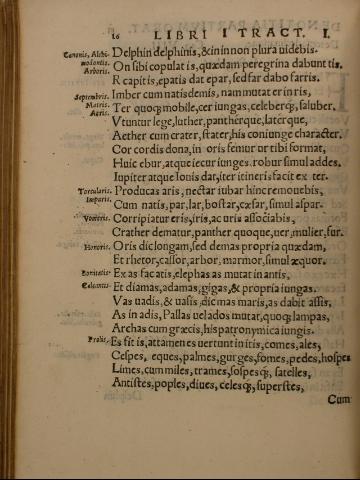 16 LIBRI I TRACT. I.
Canonis, Alchi- Delphin delphinis, & in in non plura uidebis.
modontis. On sibi copulat is, quædam peregrina dabunt tis.
Arboris. R capit is, epatis dat epar, sed far dabo farris.
Septembris. Imber cum natis demis, nam mutat er in ris,
Matris. Ter quoq; mobile, cer iungas, celeberq;, saluber.
Aeris. Vtuntur lege, luther, pantherque, laterque,
Aether cum crater, stater, his coniunge character.
Cor cordis dona, in oris femur ur tibi format,
Huic ebur, atque iecur iunges. robur simul addes.
Iupiter atque Iouis dat, iter itineris facit ex ter.
Torcularis. Producas aris, nectar iubar hinc remouebis,
Imparis. Cum natis, par, lar, bostar, cæsar, simul aspar.
Vomeris. Corripiatur eris, iris, ac uris associabis,
Crather dematur, panther quoque, uer, mulier, fur.
Honoris. Oris dic longam, sed demas propria quædam,
Et rhetor, castor, arbor, marmor, simul æquor.
Bonitatis. Ex as fac atis, elephas as mutat in antis,
Calcantis. Et diamas, adamas, gigas, & propria iungas.
Vas uadis, & uasis, dic mas maris, as dabit assis,
As in adis, Pallas uelados mutat, quoq; lampas,
Archas cum græcis, his patronymica iungis.
Prolis. Es fit is, attamen es uertunt in itis, comes, ales,
Cespes, eques, palmes, gurges, fomes, pedes, hospes
Limes, cum miles, trames, sospesq;, satelles,
Antistes, poples, diues, celesq;, superstes,
Cum